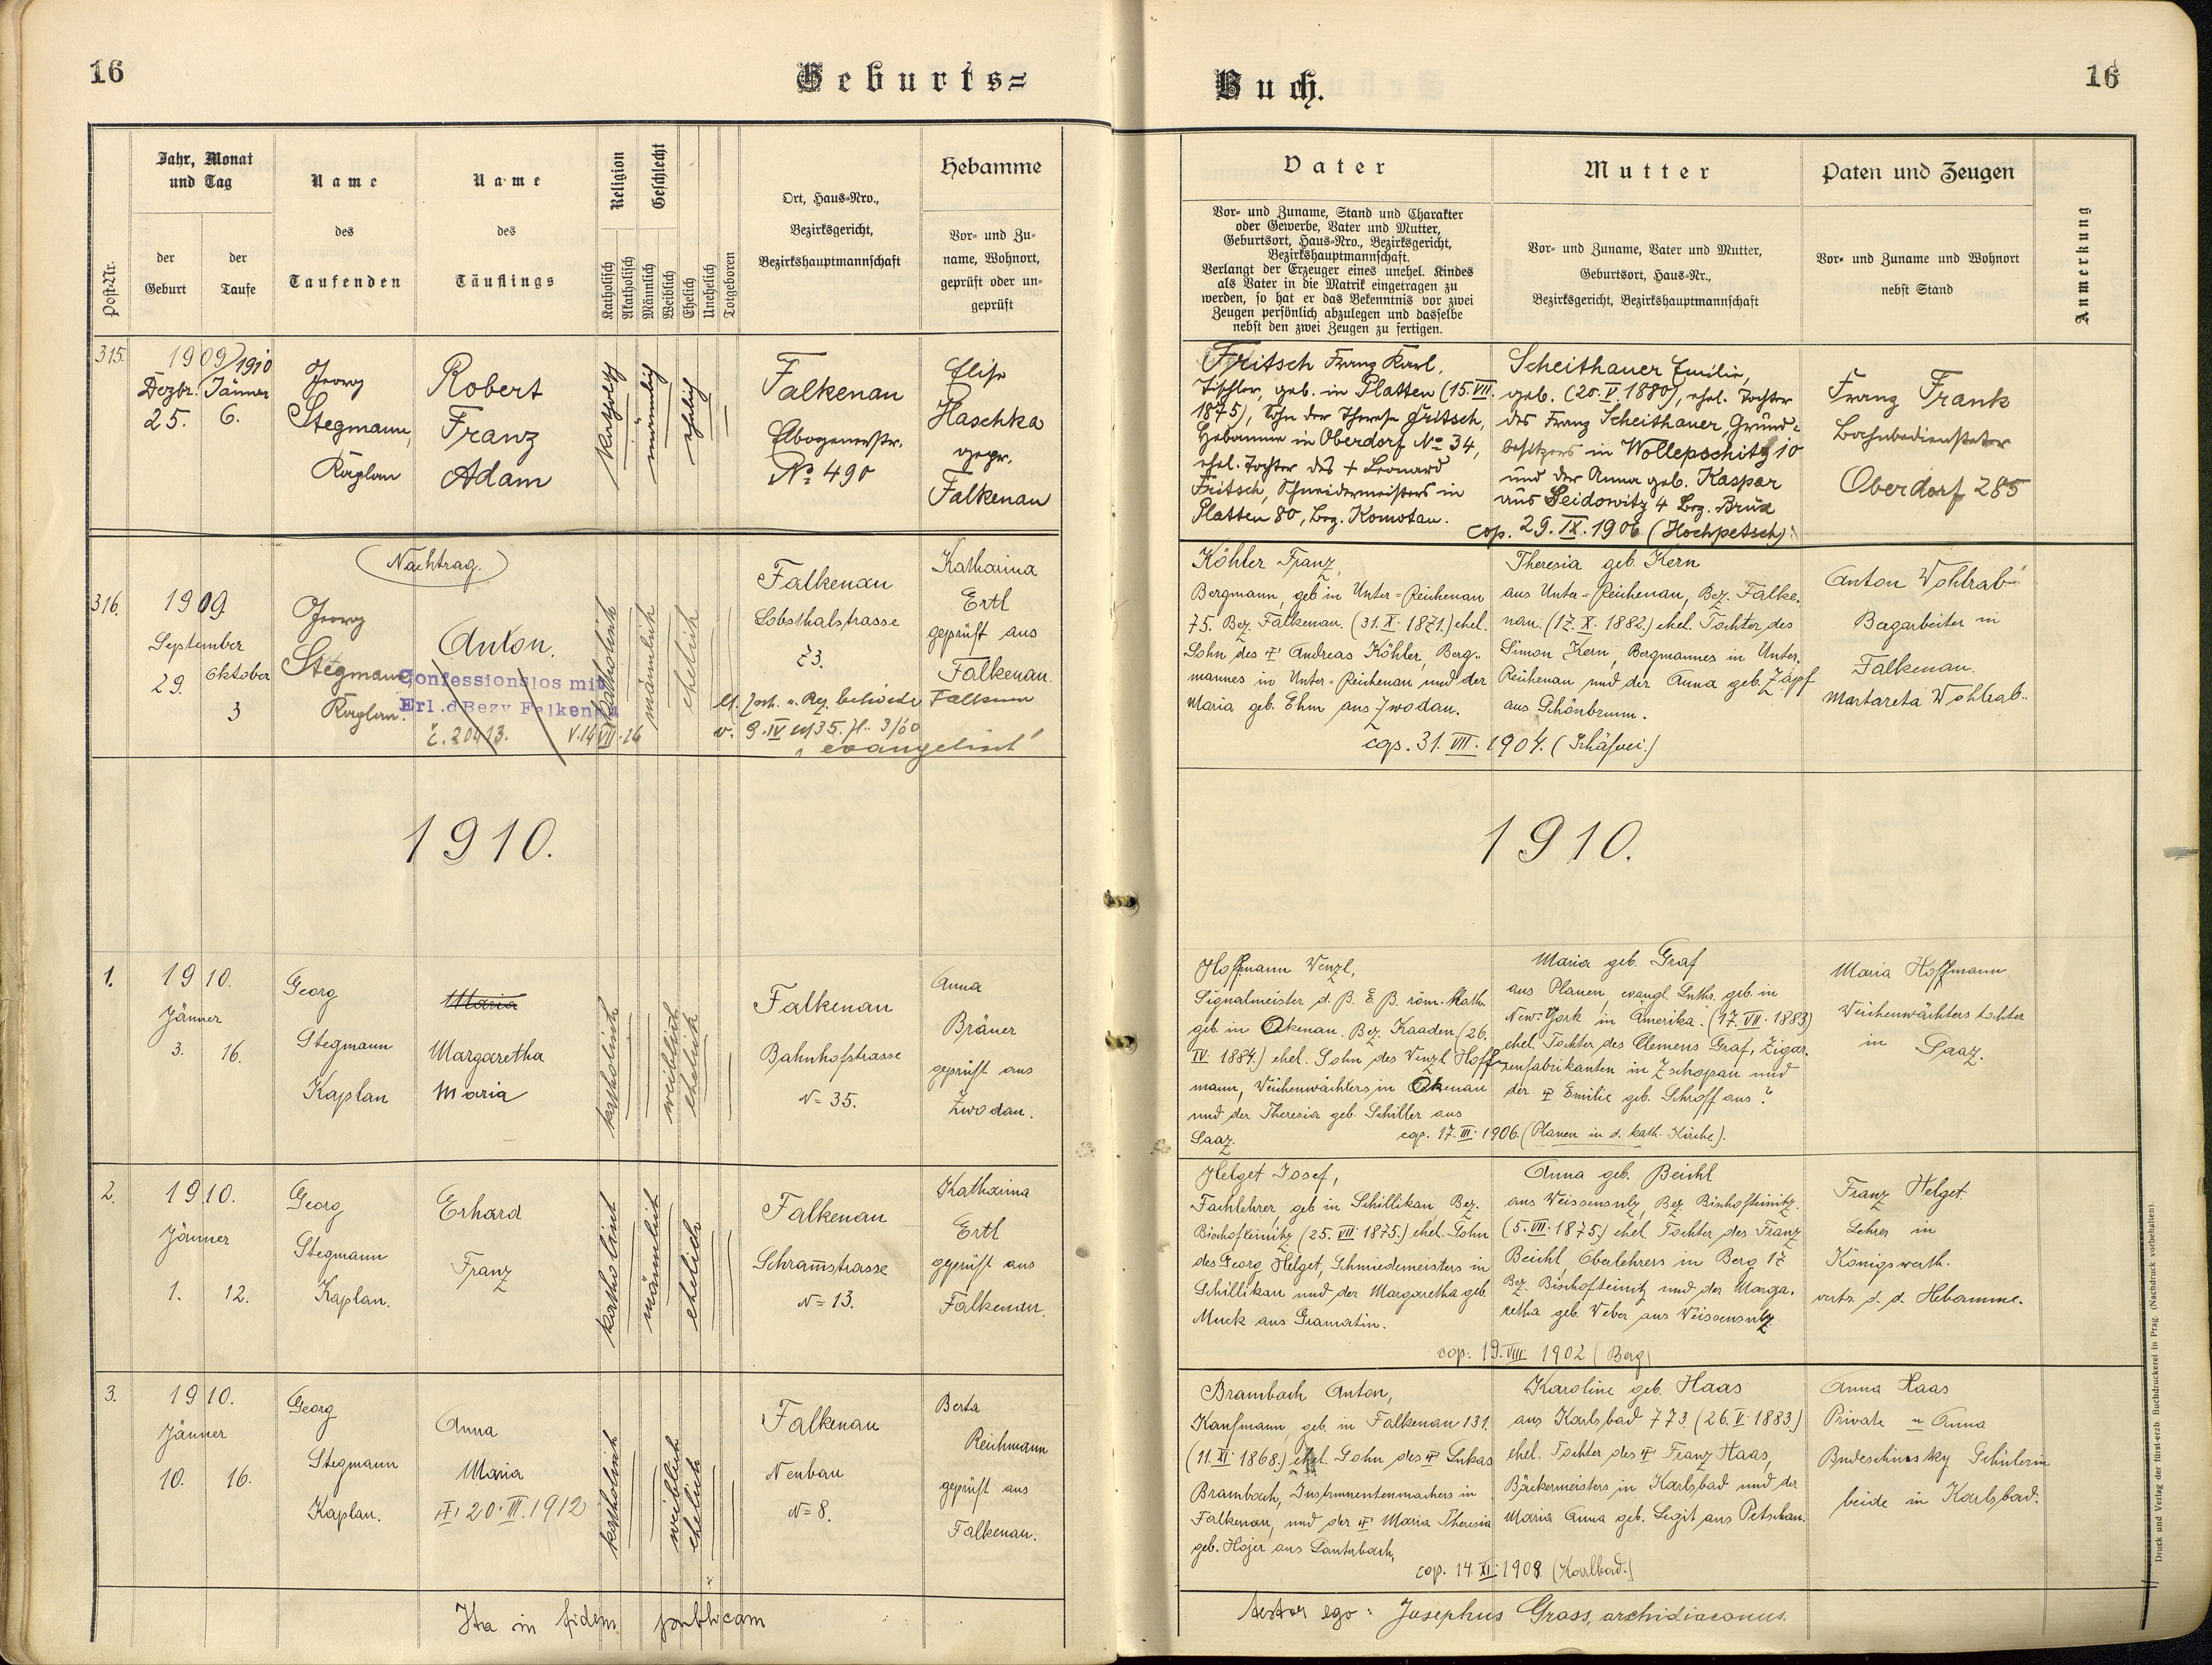 16
Geburts=
Jahr, Monat
und Tag
der
Geburt
der
Taufe
Post-Nr.
Name
des
Taufenden
Name
des
Täuflings
Religion
Katholisch
Akatholisch
Geschlecht
Männlich
Weiblich
Ehelich
Unehelich
Totgeboren
Ort, Haus=Nro.,
Bezirksgericht,
Bezirkshauptmannschaft
Hebamme
Vor- und Zu-
name, Wohnort,
geprüft oder un-
geprüft
315.
1909/1910
Dezbr. Jänner
25. 6.
Georg
Stegmann,
Kaplan
Robert
Franz
Adam
katholisch
männlich
ehelich
Falkenau
Elbogenerstr.
No 490
Elise
Haschka
gepr.
Falkenau
Nachtrag.
316.
1909.
September
Oktober
29.
3
Georg
Stegmann
Kaplan.
Anton.
Confessionslos mit
Erl. d Bezv Falkenau
č. 20413. v. 14 VII. 26
katholisch
männlich
ehelich
Falkenau
Lobsthalstrasse
73.
Katharina
Ertl
geprüft aus
Falkenau.
Falkenau
v. 9. IV 1935. 3/60
evangelisch
1910.
1.
1910.
Jänner
3. 16.
Georg
Stegmann
Kaplan
Maria
Margaretha
Maria
katholisch
weiblich
ehelich
Falkenau
Bahnhofstrasse
N= 35.
Anna
Bräuer
geprüft aus
Zwodau.
2.
1910.
Jänner
1. 12.
Georg
Stegmann
Kaplan.
Erhard
Franz
katholisch
männlich
ehelich
Falkenau
Schram̅strasse
N= 13.
Katharina
Ertl
geprüft aus
Falkenau.
3.
1910.
Jänner
10. 16.
Georg
Stegmann
Kaplan.
Anna
Maria
† 20. III. 1912
katholisch
weiblich
ehelich
Falkenau
Neubau
N= 8.
Berta
Reichmann
geprüft aus
Falkenau.
Ita in fidem publicam
Buch.
16
Vater
Vor- und Zuname, Stand und Charakter
oder Gewerbe, Vater und Mutter,
Geburtsort, Haus=Nro., Bezirksgericht,
Bezirkshauptmannschaft.
Verlangt der Erzeuger eines unehel. Kindes
als Vater in die Matrik eingetragen zu
werden, so hat er das Bekenntnis vor zwei
Zeugen persönlich abzulegen und dasselbe
nebst den zwei Zeugen zu fertigen.
Mutter
Vor- und Zuname, Vater und Mutter,
Geburtsort, Haus=Nr.,
Bezirksgericht, Bezirkshauptmannschaft
Paten und Zeugen
Vor- und Zuname und Wohnort
nebst Stand
Anmerkung
Fritsch Franz Karl,
Tischler, geb. in Platten (15. VII.
1875), Sohn der Therese Fritsch,
Hebamme in Oberdorf No 34,
ehel. Tochter des † Leonard
Fritsch, Schneidermeisters in
Platten 80, Bez. Komotau.
Scheithauer Emilie,
geb. (20. V. 1880), ehel. Tochter
des Franz Scheithauer, Grund=
besitzers in Wollepschitz 10
und der Anna geb. Kaspar
aus Seidowitz 4 Bez. Brüx
cop. 29. IX. 1906 (Hochpetsch)
Franz Frank
Bahnbediensteter
Oberdorf 285
Köhler Franz,
Bergmann, geb in Unter=Reichenau
75. Bez. Falkenau. (31. X. 1871.) ehel.
Sohn des † Andreas Köhler, Berg=
mannes in Unter=Reichenau und der
Maria geb. Ehm aus Zwodau.
Theresia geb. Kern
aus Unter=Reichenau, Bez. Falke=
nau. (17. X. 1882.) ehel. Tochter des
Simon Kern, Bergmannes in Unter=
Reichenau und der Anna geb. Zapf
aus Schönbrunn.
cop. 31. VIII. 1904. (Schäferei.)
Anton Wohlrab
Bergarbeiter in
Falkenau.
Margareta Wohlrab.
1910.
Hoffmann Wenzl,
Signalmeister d. B. E. B. röm. kath.
geb in Okenau. Bez. Kaaden (26.
IV. 1884.) ehel. Sohn des Wenzl Hoff=
mann, Weichenwächters in Okenau
und der Theresia geb. Schiller aus
Saaz.
Maria geb. Graf
aus Planen, evangl. Luthr. geb. in
New-York in Amerika. (17. VII. 1883)
ehel. Tochter des Clemens Graf, Zigar=
renfabrikanten in Zschopau und
der † Emilie geb. Schroff aus ?
cop. 17. III. 1906. (Planen in d. kath. Kirche).
Maria Hoffmann
Weichenwächters tochter
in Saaz.
Helget Josef,
Fachlehrer, geb in Schillikau Bez.
Bischofteinitz (25. VII. 1875.) ehel. Sohn
des Georg Helget, Schmiedemeisters in
Schillikau und der Margaretha geb.
Muck aus Gramatin.
Anna geb. Beichl
aus Weissensulz, Bez. Bischofteinitz.
(5. VIII. 1875.) ehel. Tochter des Franz
Beichl, Oberlehrers in Berg 17
Bez. Bischofteinitz und der Marga=
retha geb. Weber aus Weissensulz.
cop. 19. VIII 1902 (Berg)
Franz Helget.
Lehrer in
Königswerth.
vertr. d. d. Hebamme.
Brambach Anton,
Kaufmann, geb. in Falkenau 131.
(11. XI. 1868.) ehel. Sohn des † Lukas
Brambach, Instrumentenmachers in
Falkenau, und der † Maria Theresia
geb. Hojer aus Lauterbach,
Karoline geb. Haas
aus Karlsbad 773. (26. V. 1883.)
ehel. Tochter des † Franz Haas,
Bäckermeisters in Karlsbad und der
Maria Anna geb. Legit aus Petschau.
cop. 14. XI. 1908 (Karlbad.)
Anna Haas
Private u Anna
Budeschinsky Schülerin
beide in Karlsbad.
testor ego: Josephus Grass, archidiaconus.
Druck und Verlag der fürst-erzb. Buchdruckerei in Prag. (Nachdruck vorbehalten).